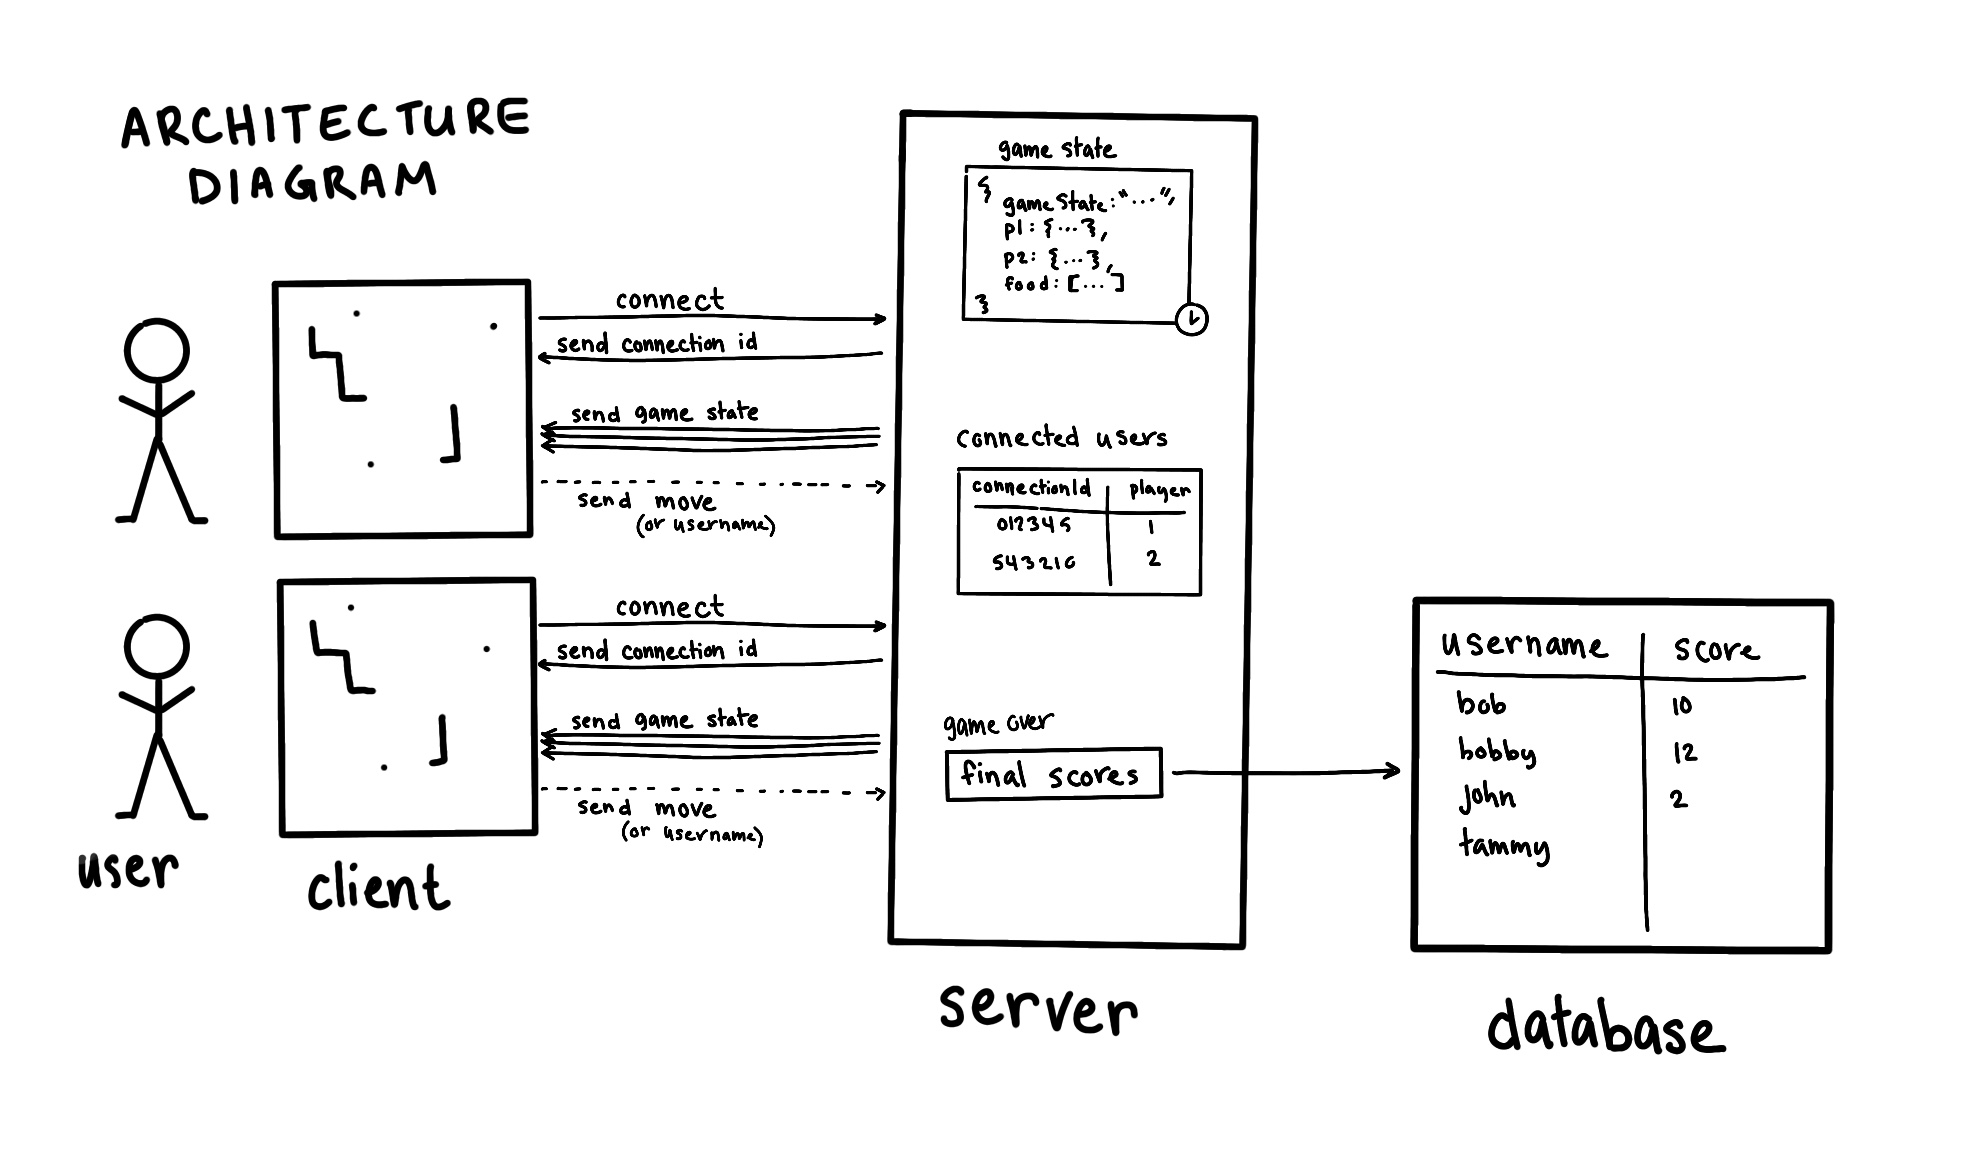 ARCHITECTURE
DIAGRAM
connect
send connection id
send game state
send move
(or username)
connect
send connection id
send game state
send move
(or username)
user
client
game state
{
gameState: "...",
p1: {...},
p2: {...},
food: [...]
}
connected users
connectionId player
012345 1
543210 2
game over
final scores
server
username score
bob 10
bobby 12
john 2
tammy
database